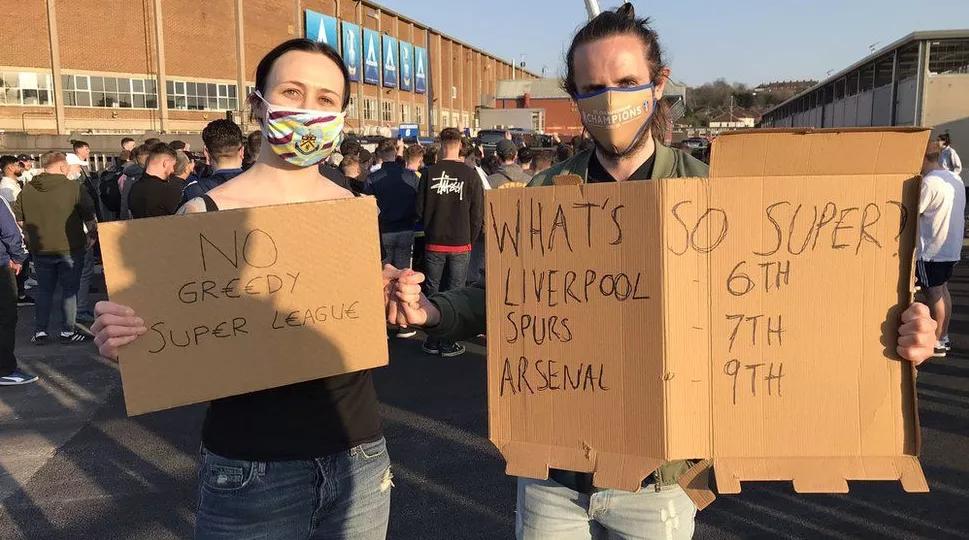 NO
GR€€DY
SUP€R L€AGU€
WHAT'S SO SUPER?
LIVERPOOL - 6TH
SPURS - 7TH
ARSENAL - 9TH
CHAMPIONS
Stüssy